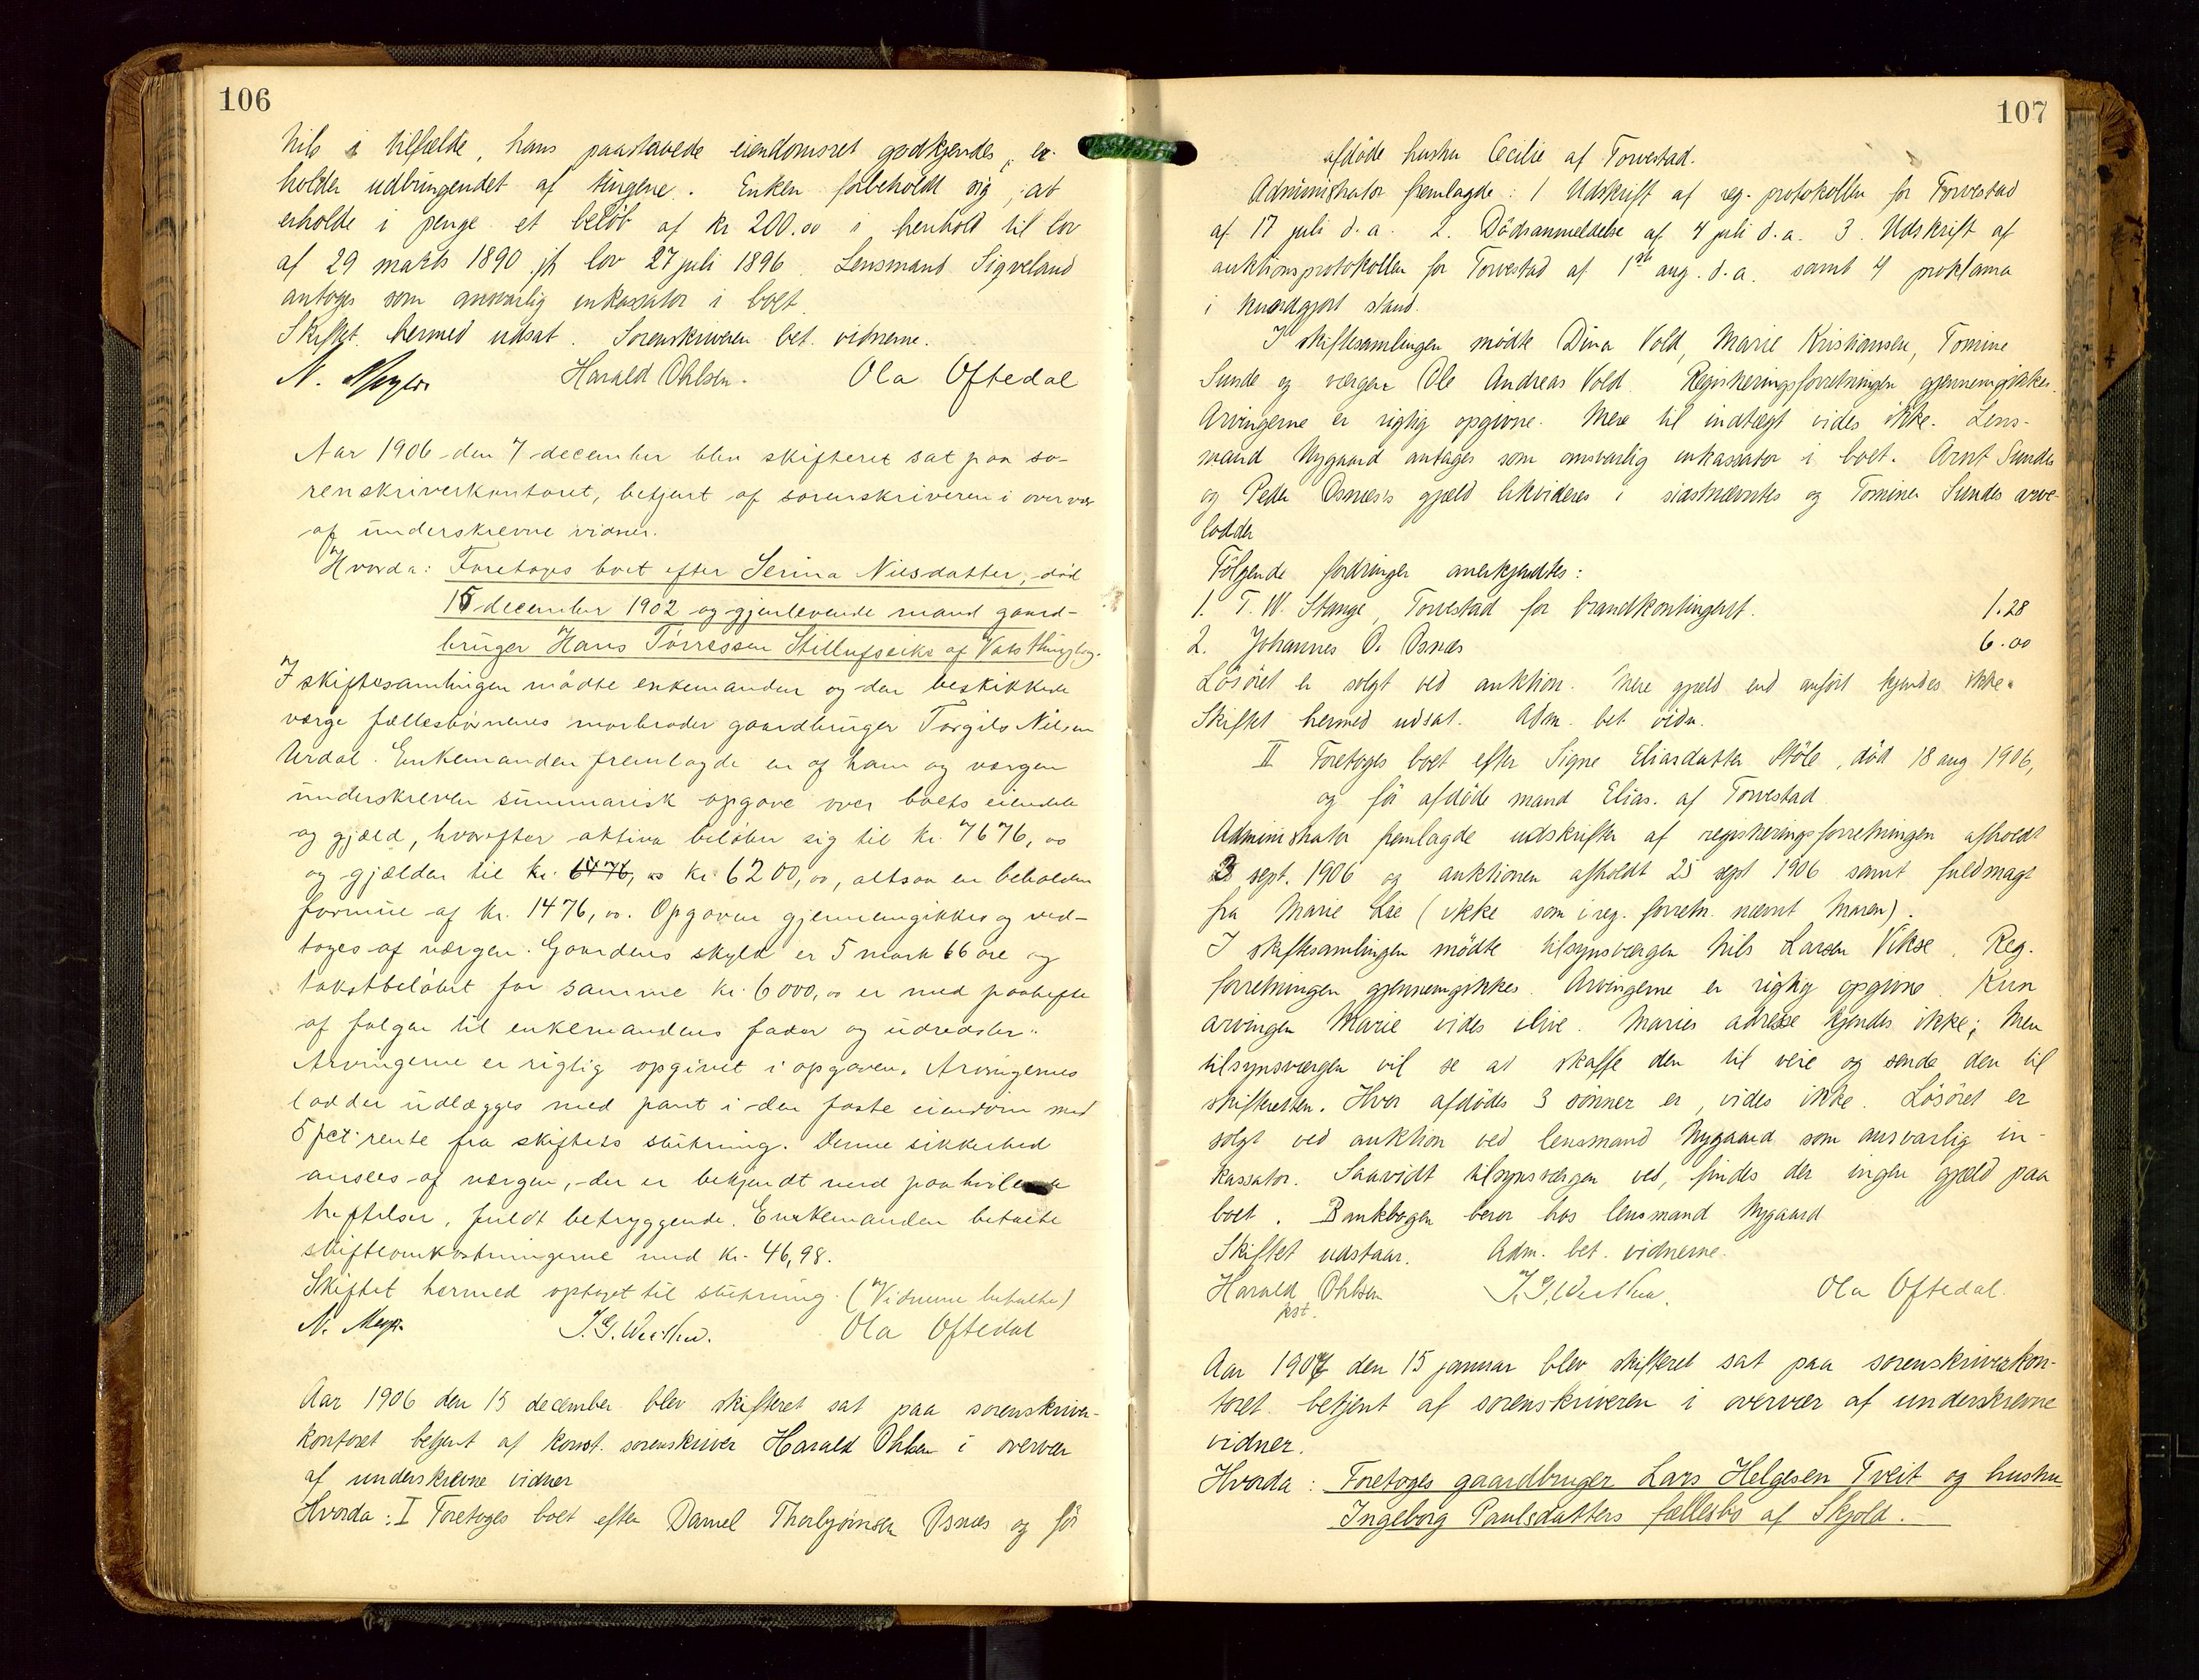 106
Nils i tilfælde, hans paastaaede eiendomsret godkjendes, er-
holder udbringendet af tingene. Enken forbeholdt sig, at
erholde i penge et beløb af kr 200.00 i henhold til lov
af 29 marts 1890 jfr lov 27 juli 1896. Lensmand Sigveland
antoges som ansvarlig inkassator i boet.
Skiftet hermed udsat. Sorenskriveren bet. vidnerne.
N. Meyer Harald Ohlsen. Ola Oftedal
Aar 1906 den 7 december blev skifteret sat paa so-
renskriverkontoret, betjent af sorenskriveren i overvær
af underskrevne vidner.
Hvorda: Foretoges boet efter Serina Nilsdatter, død
15 december 1902 og gjenlevende mand gaard-
bruger Hans Tørressen
I skiftesamlingen mødte enkemanden og den beskikkede
værge fællesbørnenes morbroder gaardbruger Torgils Nilsen
Urdal. Enkemanden fremlagde en af ham og værgen
underskreven summarisk opgave over boets eiendele
og gjæld, hvorefter aktiva beløber sig til kr. 7676,00
og gjælden til kr. 6476,00 kr. 6200,00, altsaa en beholden
formue af kr. 1476,00. Opgaven gjennemgikkes og ved-
toges af værgen. Gaardens skyld er 5 mark 66 øre og
takstbeløbet for samme kr. 6000,00 er med paahefte
af følgen til enkemandens fader og udredsler.
Arvingerne er rigtig opgivet i opgaven. Arvingernes
lodder udlægges med pant i den faste eiendom med
5 pct rente fra skiftets slutning. Denne sikkerhed
ansees af værgen, der er bekjendt med paahvilende
heftelser, fuldt betryggende. Enkemanden betalte
skifteomkostningerne med kr. 46,98.
Skiftet hermed optaget til slutning. (Vidnerne betalte)
N. Meyer Ola Oftedal
Aar 1906 den 15 december blev skifteret sat paa sorenskriver-
kontoret betjent af konst. sorenskriver Harald Ohlsen i overvær
af underskrevne vidner
Hvorda: I Foretoges boet efter Daniel Thorbjørnsen Osnæs og før
107
afdøde hustru Cecilie af Torvestad.
Administrator fremlagde: 1 Udskrift af reg. protokollen for Torvestad
af 17 juli d.a. 2. Dødsanmeldelse af 4 juli d.a. 3. Udskrift af
auktionsprotokollen for Torvestad af 1ste aug. d.a. samt 4 proklama
i kundgjort stand.
I skiftesamlingen mødte Dina Vold, Marie Kristiansen, Tomine
Sunde og værgen Ole Andreas Vold. Registreringsforretningen gjennemgikkes.
Arvingerne er rigtig opgivne. Mere til indtægt vides ikke. Lens-
mand Nygaard antages som ansvarlig inkassator i boet. Arnt Sundes
og Peder Osnæs's gjæld likvideres i sidstnævntes og Tomine Sundes arve-
lodder
Følgende fordringer anerkjendtes:
1. T. W. Stange, Torvestad for brandkontingent. 1.28
2. Johannes O. Osnæs 6.00
Løsøret er solgt ved auktion. Mere gjæld end anført kjendes ikke.
Skiftet hermed udsat. Adm. bet. vidn.
II Foretoges boet efter Signe Eliasdatter Støle, død 18 aug 1906,
og før afdøde mand Elias. af Torvestad
Administrator fremlagde udskrifter af registreringsforretningen afholdt
3 sept. 1906 og auktionen afholdt 25 sept 1906 samt fuldmagt
fra Marie Lie (ikke som i reg. forretn. nævnt Maren).
I skiftesamlingen mødte tilsynsværgen Nils Larsen Vikse. Reg.
forretningen gjennemgikkes. Arvingerne er rigtig opgivne. Kun
arvingen Marie vides ilive. Maries adresse kjendes ikke; Men
tilsynsværgen vil se at skaffe den til veie og sende den til
skifteretten. Hvor afdødes 3 sønner er, vides ikke. Løsøret er
solgt ved auktion ved lensmand Nygaard som ansvarlig in-
kassator. Saavidt tilsynsværgen ved, findes der ingen gjæld paa
boet. Bankbogen beror hos lensmand Nygaard
Skiftet udstaar. Adm. bet. vidnerne.
Harald Ohlsen Ola Oftedal.
kst.
Aar 1907 den 15 januar blev skifteret sat paa sorenskriverkon-
toret betjent af sorenskriveren i overvær af underskrevne
vidner.
Hvorda: Foretoges gaardbruger Lars Helgesen Tveit og hustru
Ingeborg Paulsdatters fællesbo af Skjold.